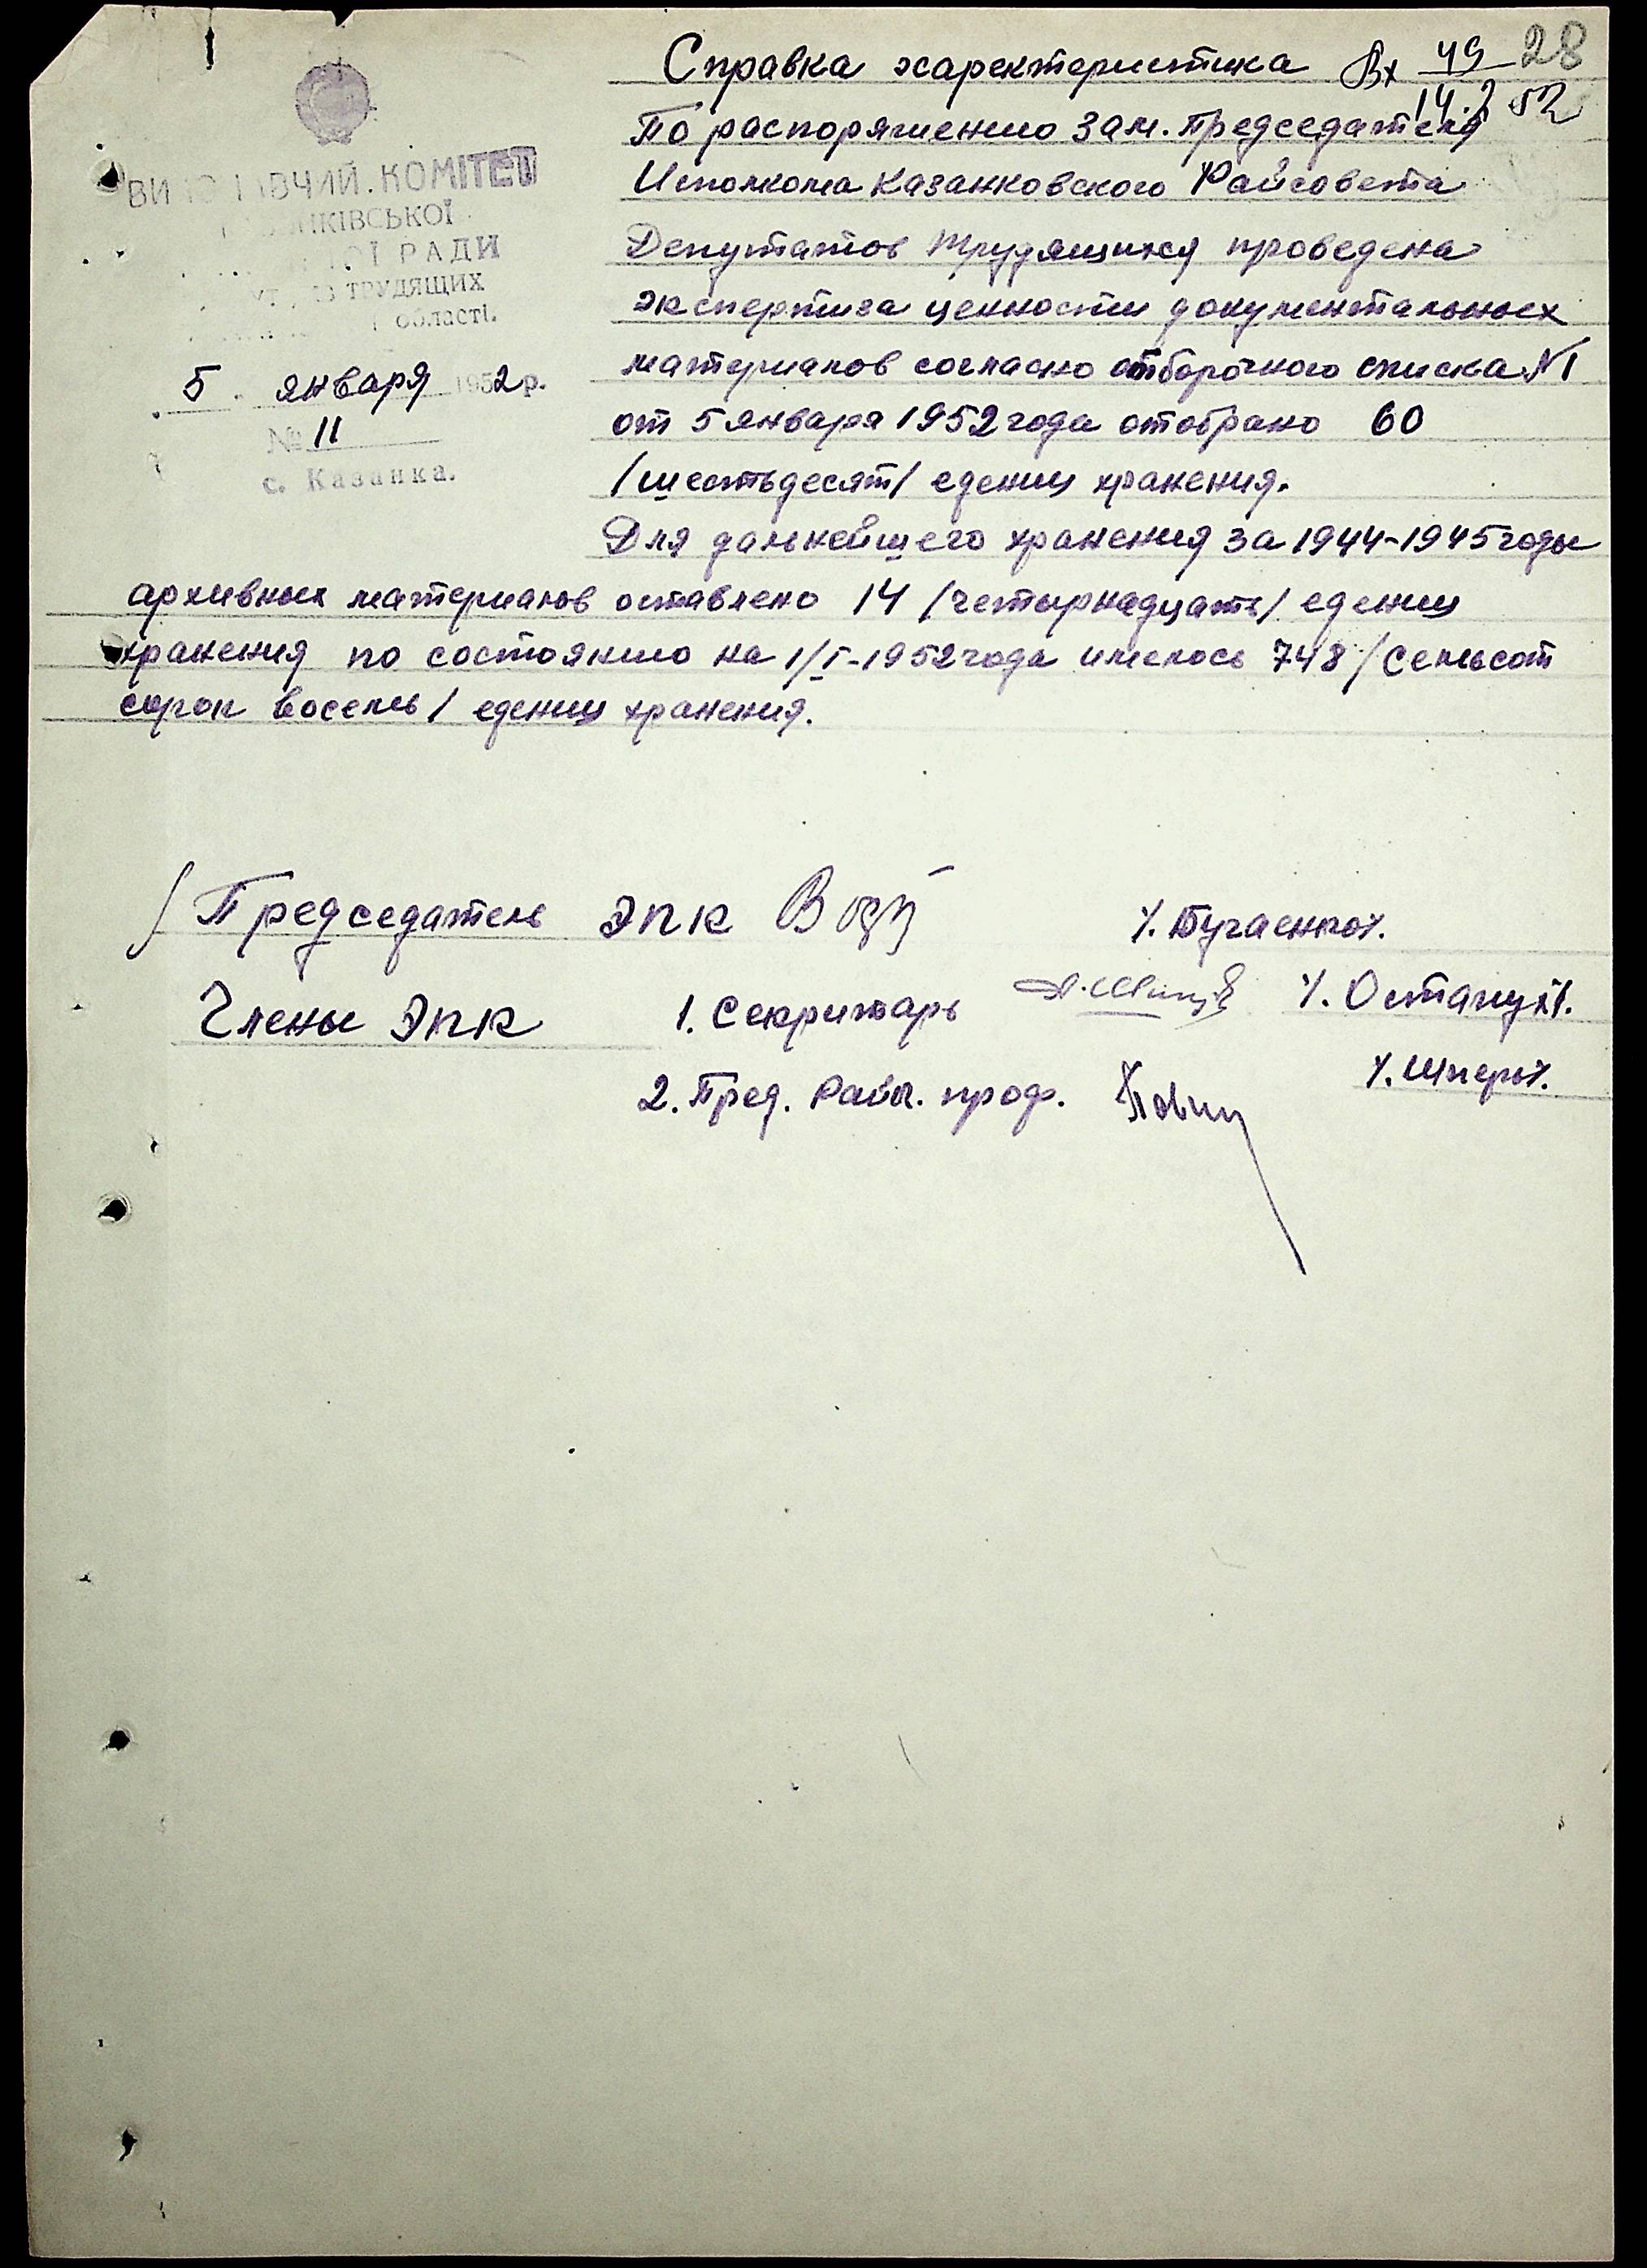 28
Вх 49
14.I 52
Справка характеристика
КОМІТЕТ
РАДИ
ТРУДЯЩИХ
області.
5 января 1952 р.
№ 11
с. Казанка.
По распоряжению Зам. Председателя
Исполкома Казанковского Райсовета
Депутатов Трудящихся проведена
экспертиза ценности документальных
материалов согласно отборочного списка №1
от 5 января 1952 года отобрано 60
/шестьдесят/ едениц хранения.
Для дальнейшего хранения за 1944-1945 годы
архивных материалов оставлено 14 /четырнадцать/ едениц
хранения по состоянию на 1/I-1952 года имелось 748 /семьсот
сорок восемь/ едениц хранения.
Председатель ЭПК /.Бугаенко/.
Члены ЭПК 1. Секритарь /.Остапчук/.
2. Пред. Райк. проф. /.Шпер/.